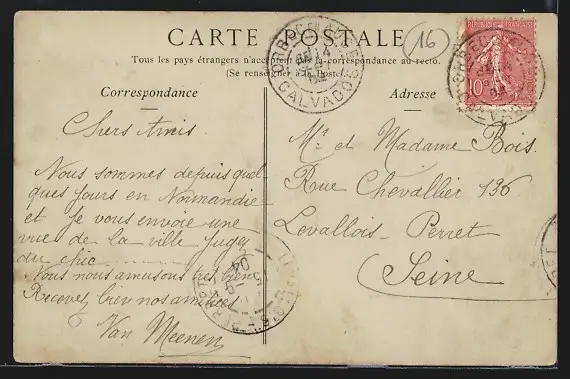 CARTE POSTALE
Tous les pays étrangers n'acceptent pas la correspondance au recto.
(Se renseigner à la Poste)
Correspondance
Adresse
16
ORBEC-EN-AUGE
CALVADOS
RÉPUBLIQUE FRANÇAISE
10
Chers Amis.
Nous sommes depuis quel
ques Jours en Normandie
et je vous envoie une
vue de la ville Jugez
du chic
Nous nous amusons très bien
Recevez bien nos amitiés
Van Meenen
Mr et Madame Bois.
Rue Chevallier 136
Levallois-Perret
Seine